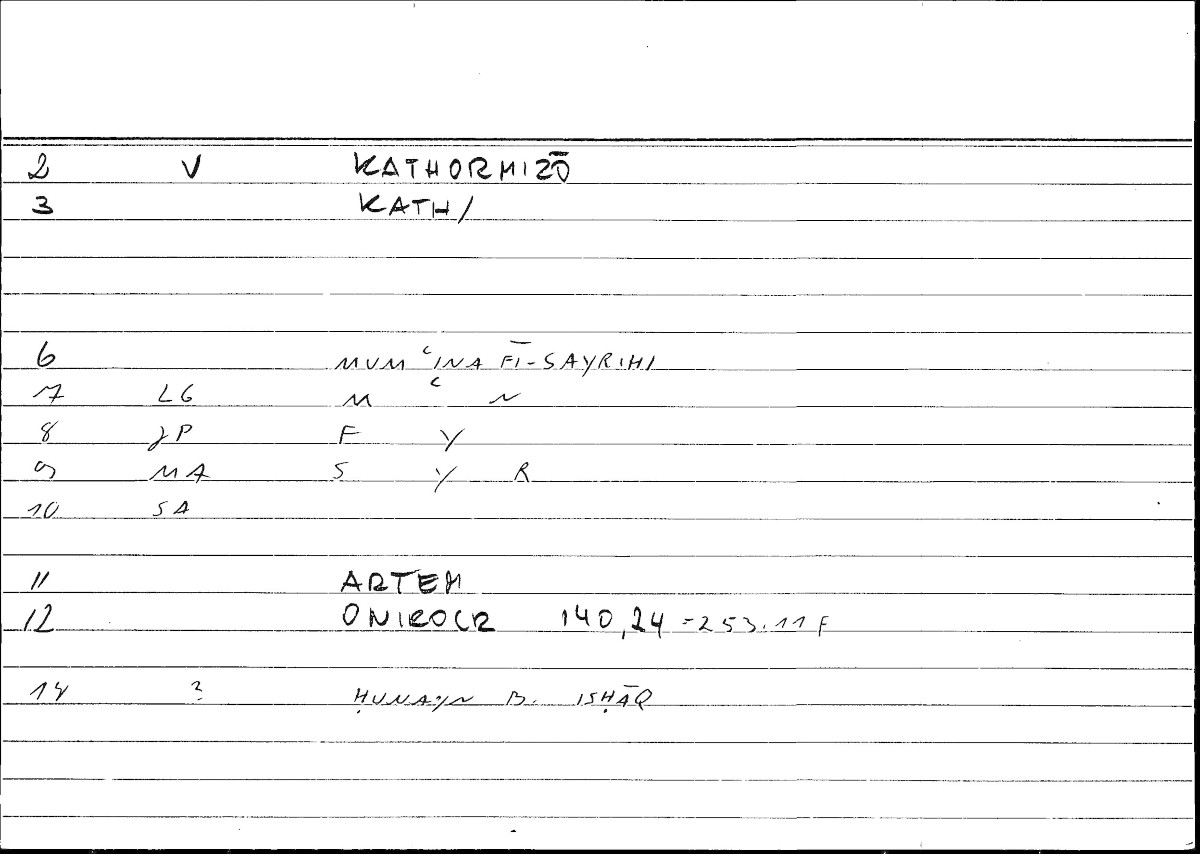 2 V KATHORMIZŌ
3 KATH/
6 MUM ʿINA FĪ-SAYRIHI
7 LG M ʿ N
8 JP F Y
9 MA S Y R
10 SA
11 ARTEM
12 ONIROCR 140,24 =253.11 F
14 ? ḤUNAYN B. ISḤĀQ